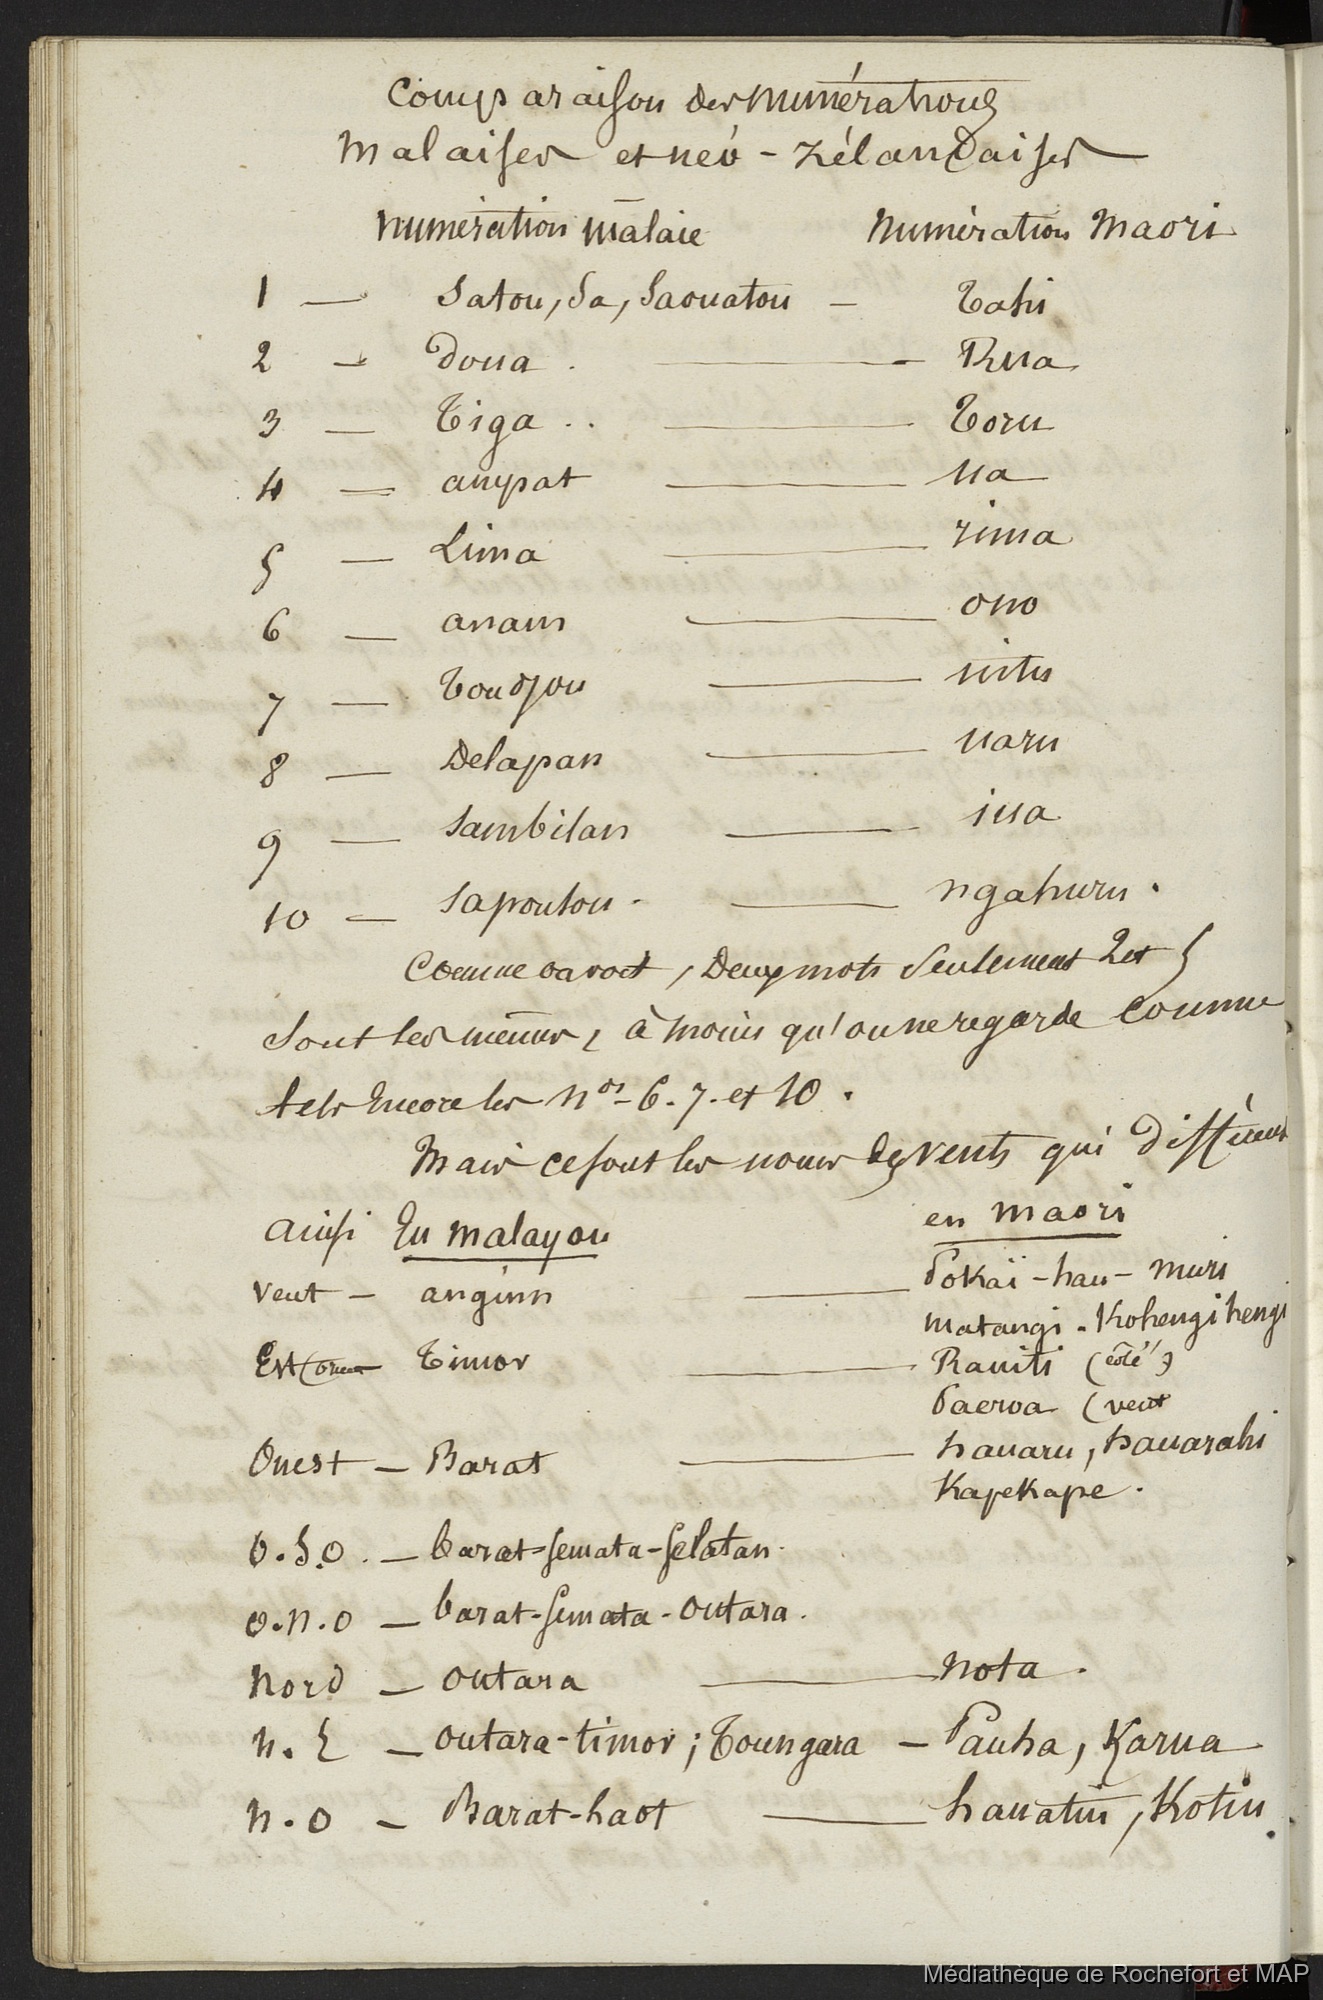 Comparaison des numérations
Malaises et néo-zélandaises
numération malaie numération Maori
1 — Satou, Sa, Saouatou — Tahi
2 — Doua . — Rua
3 — Tiga .. — Toru
4 — ampat — ua
5 — Lima — rima
6 — anam — ono
7 — Toudjou — witu
8 — Delapan — uaru
9 — Sambilan — iua
10 — Sapoulou . — ngahuru .
Comme on voit, Deux mots seulement 2 et 5
sont les mêmes, à moins qu'on ne regarde comme
tels encore les nos 6. 7. et 10 .
Mais ce sont les noms des vents qui diffèrent
ainsi En malayou en maori
Vent — anginn — Pokaï-hau-muri
matangi - Kohengihengi
Est — Timor — Rawiti (côté)
Paeroa (vent
Ouest — Barat — hauaru, hauarahi
Kapekape .
O.S.O. — barat-semata-selatan
O.N.O — barat-semata-outara .
Nord — outara — nota .
N. E — outara-timor ; Toungara — Pauha, Karua
N.O — Barat-laot — hauatiu, Kotiu .
Médiathèque de Rochefort et MAP